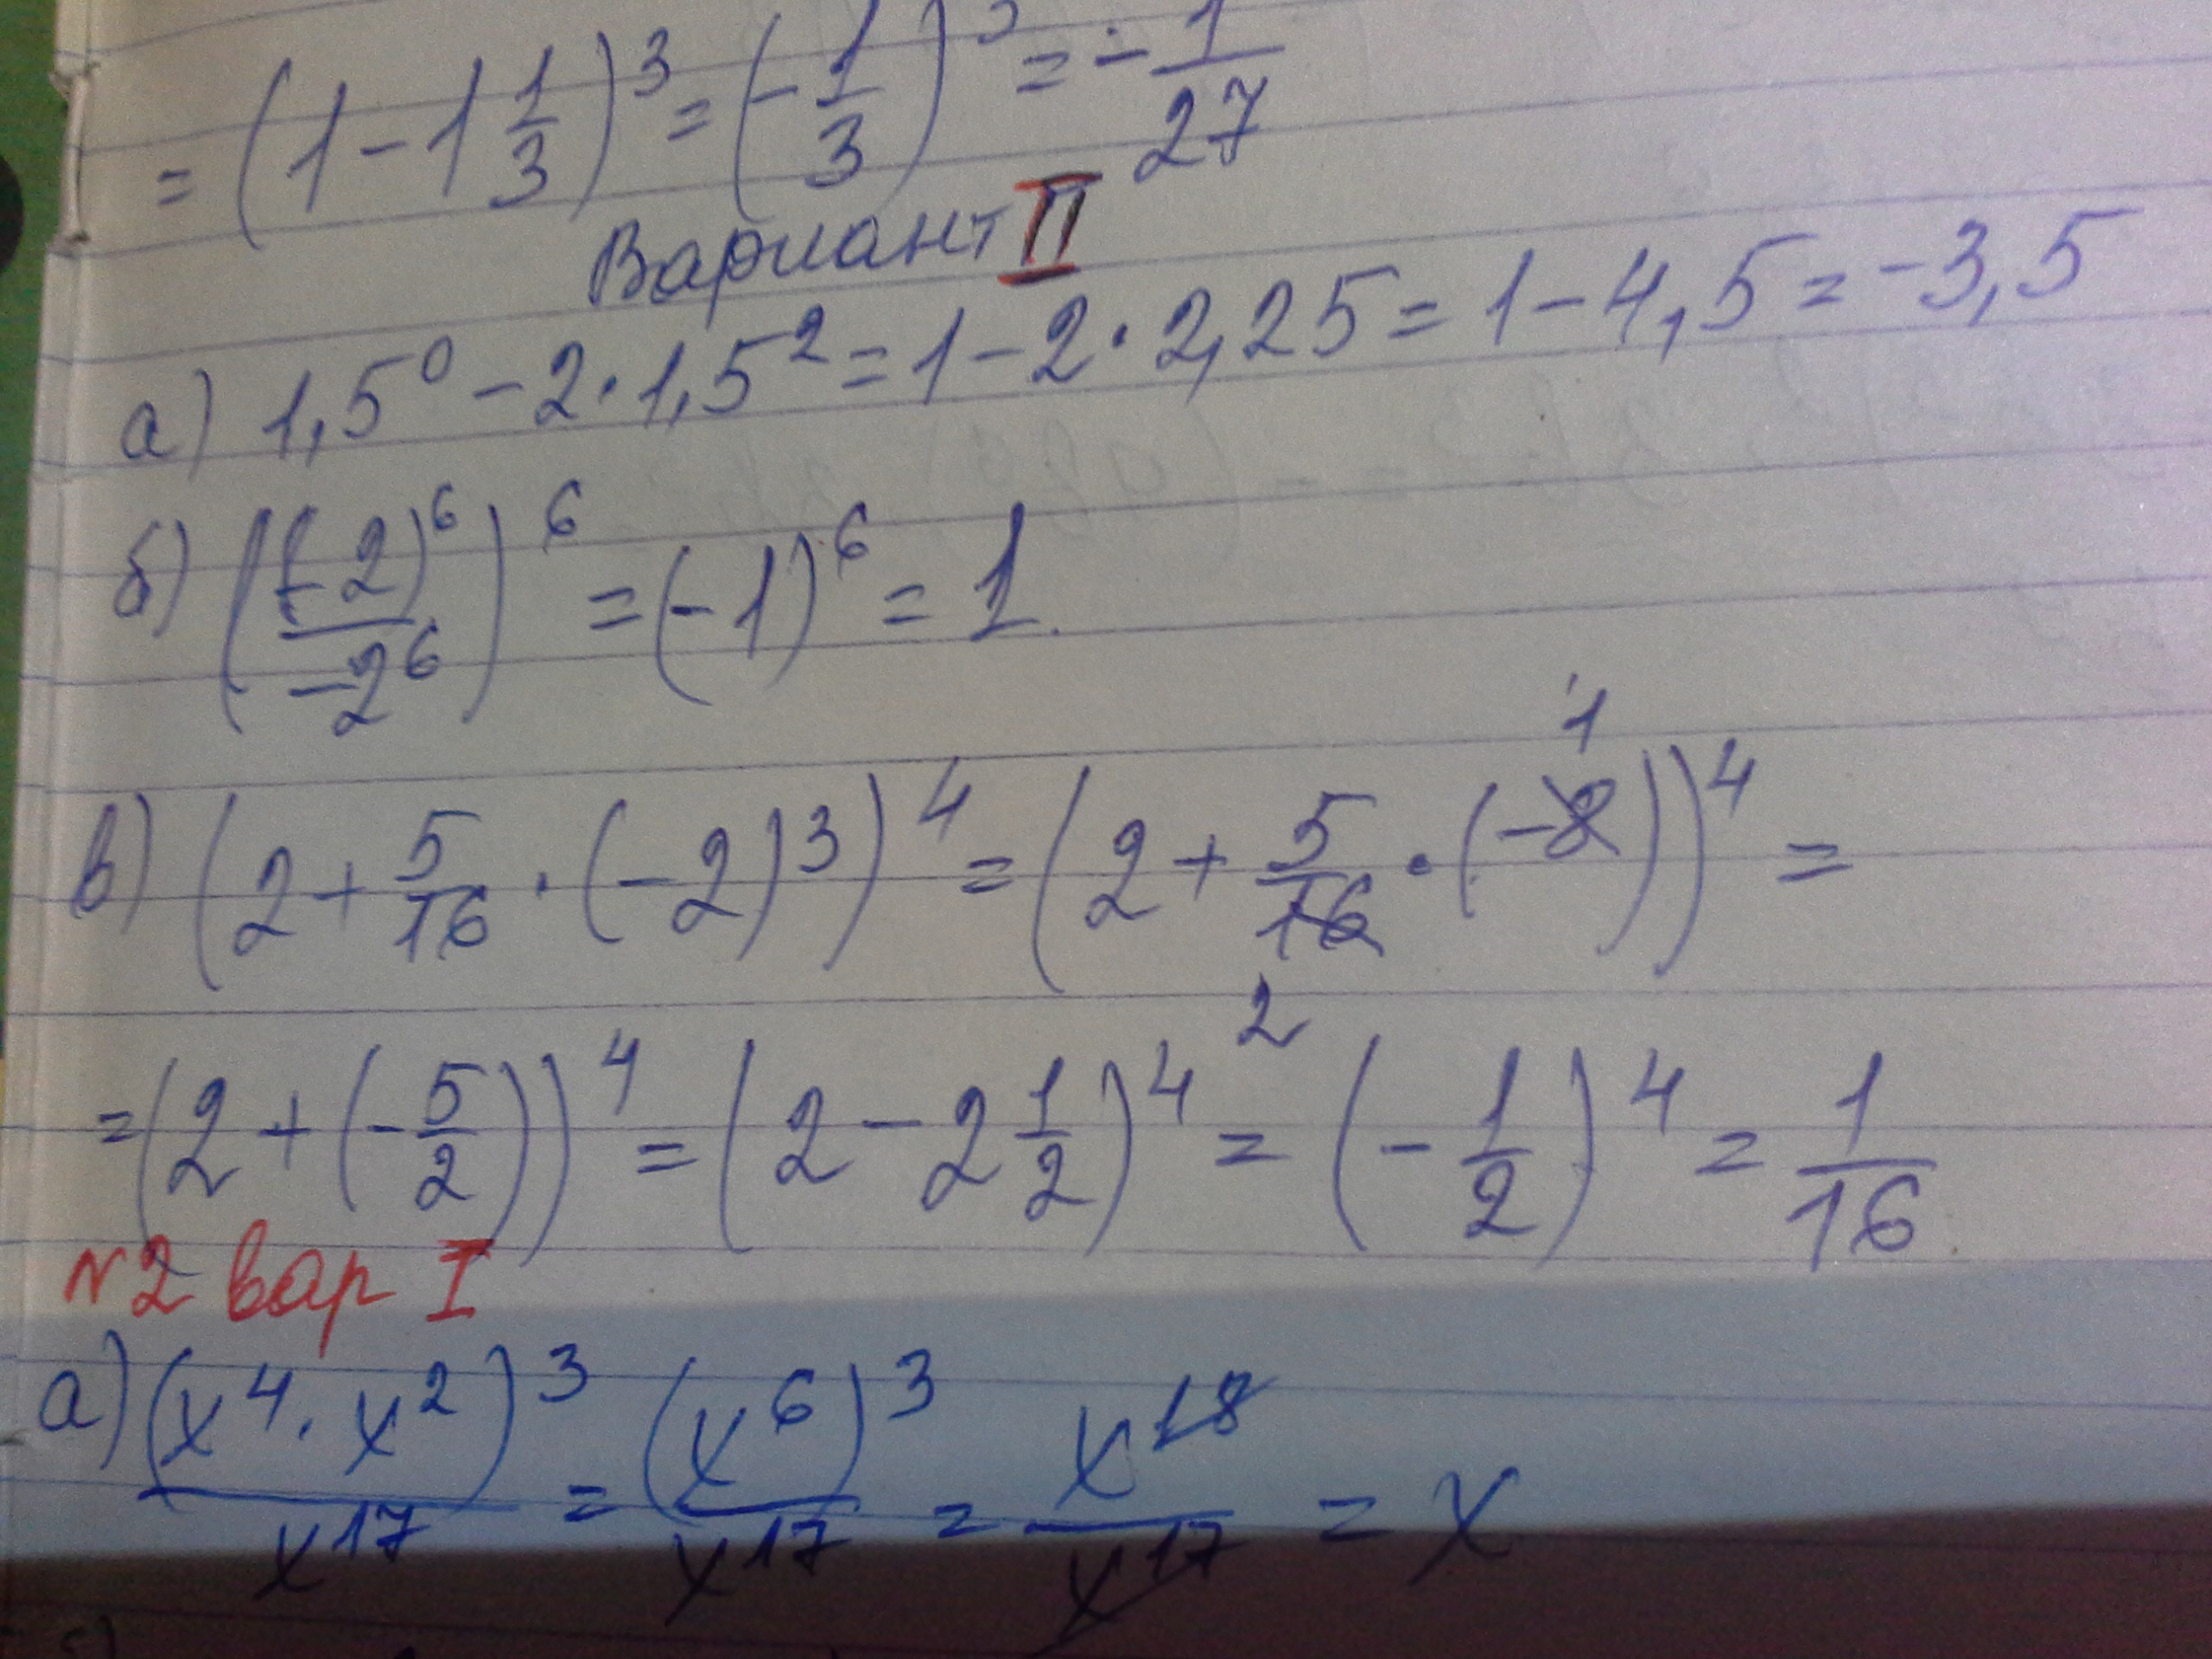 = (1 - 1 1/3)^3 = (-1/3)^3 = -1/27
Вариант II
а) 1,5^0 - 2 · 1,5^2 = 1 - 2 · 2,25 = 1 - 4,5 = -3,5
б) ((-2)^6/-2^6)^6 = (-1)^6 = 1
в) (2 + 5/16 · (-2)^3)^4 = (2 + 5/16 · (-8))^4 =
1
2
= (2 + (-5/2))^4 = (2 - 2 1/2)^4 = (-1/2)^4 = 1/16
N2 вар I
а) (x^4 · x^2)^3/x^17 = (x^6)^3/x^17 = x^18/x^17 = x